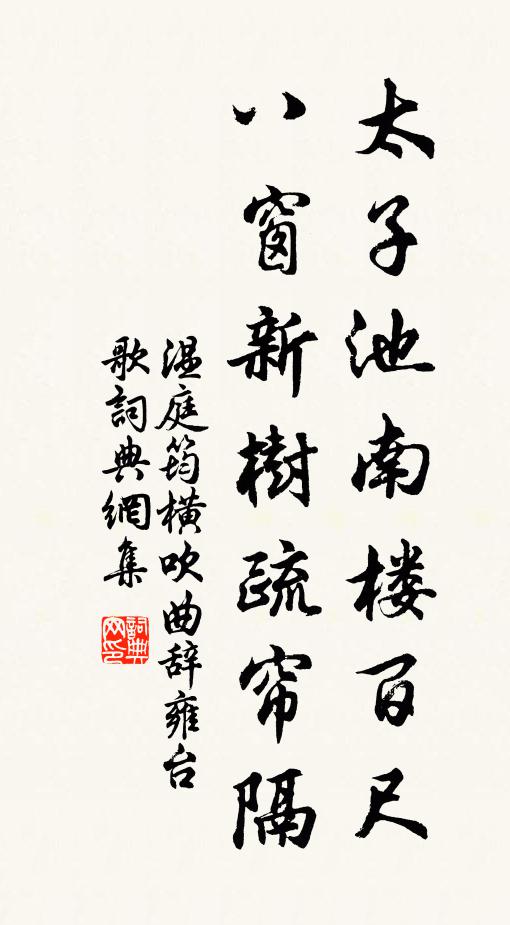 太子池南楼百尺
八窗新樹疏帘隔
温庭筠横吹曲辞雍台
歌詞典網集
詞典网印